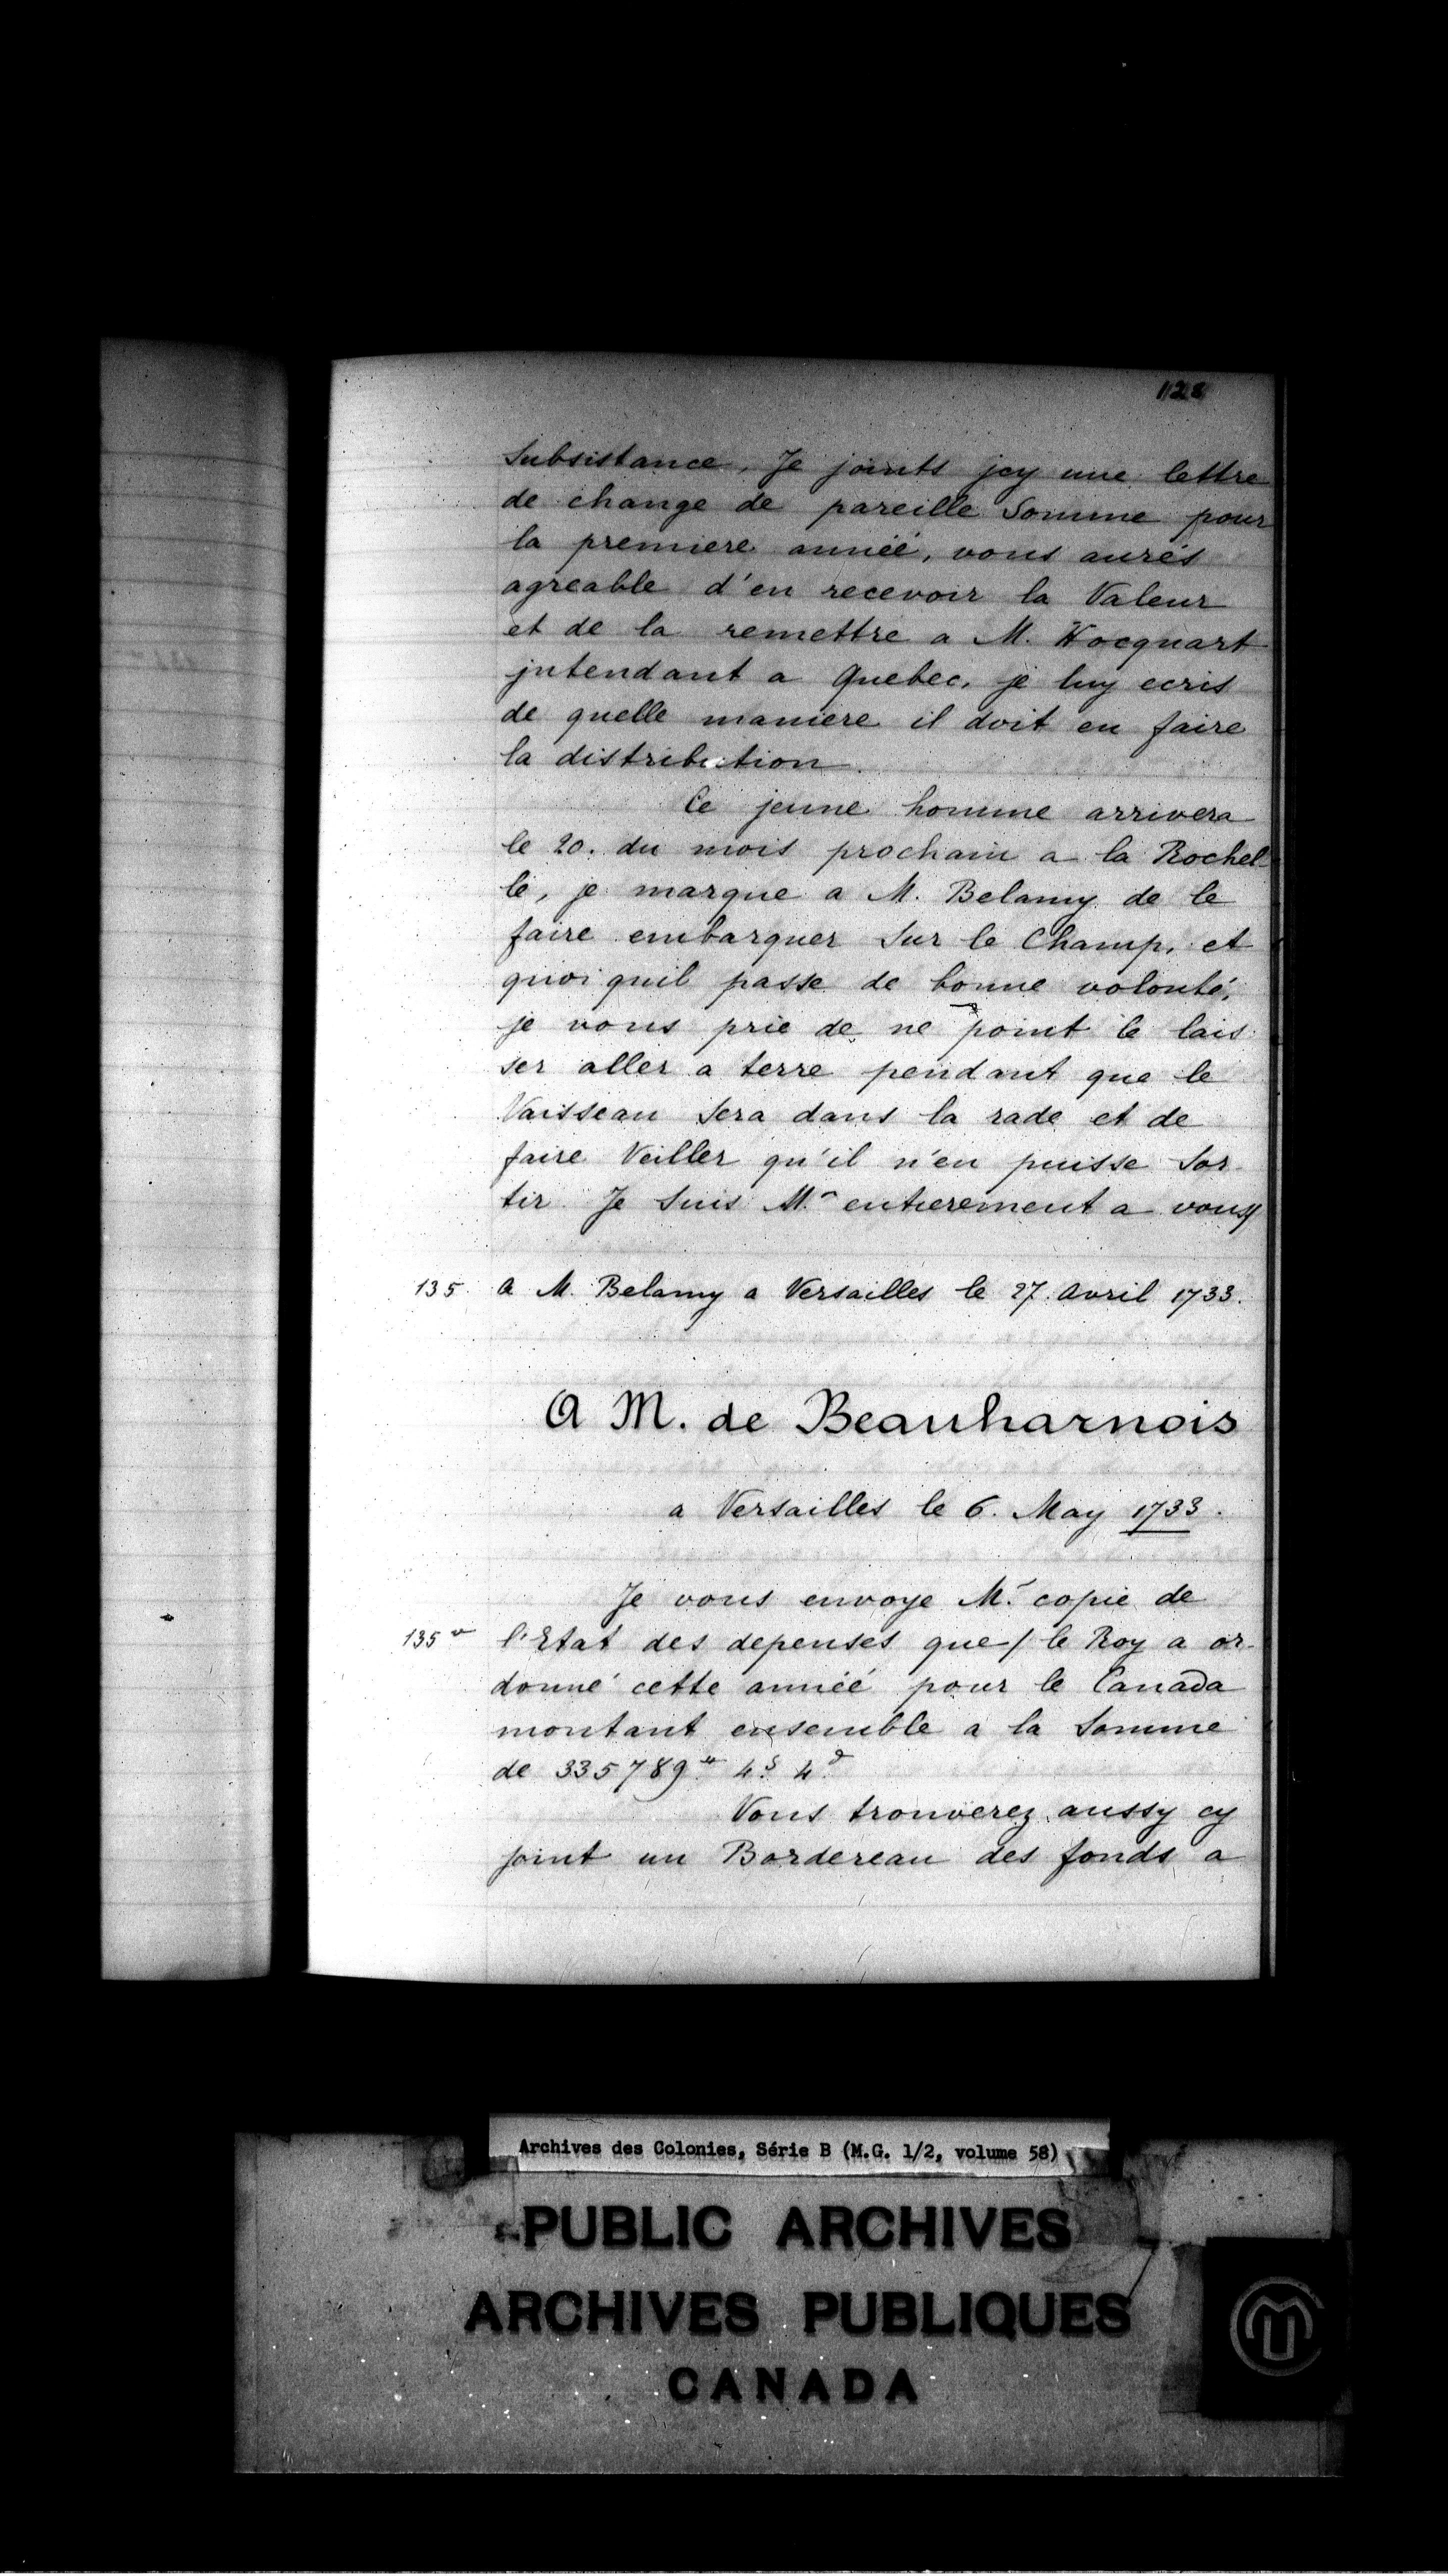 128
Subsistance, Je joints jcy une lettre
de change de pareille Somme pour
la premiere anneé, vous aurés
agreable d'en recevoir la Valeur
et de la remettre a M. Hocquart
jntendant a Quebec, je luy ecris
de quelle maniere il doit en faire
la distribution.
Ce jeune homme arrivera
le 20. du mois prochain a la Rochel-
le, je marque a M. Belamy de le
faire embarquer Sur le Champ, et
quoi quil passe de bonne volonté,
je vous prie de ne point le lais
ser aller a terre pendant que le
Vaisseau Sera dans la rade et de
faire Veiller qu'il n'en puisse Sor-
tir. Je Suis M.r entierement a vous
135. A M. Belamy a Versailles le 27. Avril 1733.
A M. de Beauharnois
a Versailles le 6. May 1733.
Je vous envoye M.r copie de
135 v l'Etat des depenses que / le Roy a or-
donné cette anneé pour le Canada
montant ensemble a la Somme
de 335789.tt 4.s 4.d
Vous trouverez aussy cy
joint un Bordereau des fonds a
Archives des Colonies, Série B (M.G. 1/2, volume 58)
PUBLIC ARCHIVES
ARCHIVES PUBLIQUES
CANADA